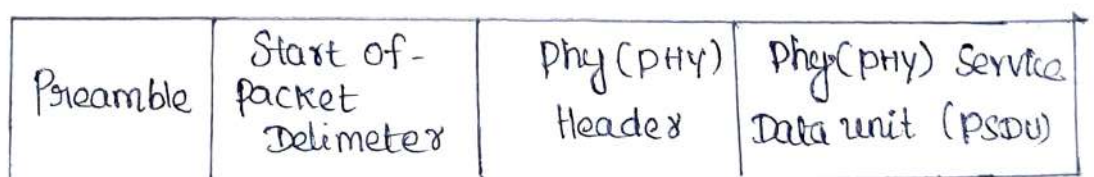 Preamble
Start of-
packet
Delimeter
Phy (PHY)
Header
Phy (PHY) Service
Data unit (PSDU)